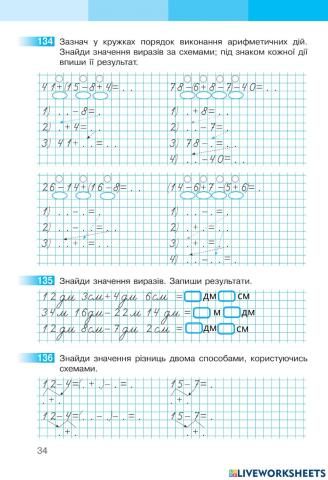 134 Зазнач у кружках порядок виконання арифметичних дій.
Знайди значення виразів за схемами; під знаком кожної дії
впиши її результат.
41+(15-8+4=. . 78-6+8-7-40=. .
1) . . -8=. 1) . +8=. .
2) . +4=. . 2) . . -7=. .
3) 41+. . =. . 3) 78-. . =. .
4) . . -40=. .
26-14+(16-8=. . (14-6+7-5+6=. .
1) . . -. =. 1) . . -. =.
2) . . -. . =. . 2) . +. =. .
3) . . +. =. . 3) . +. =. .
4) . . -. . =.
135 Знайди значення виразів. Запиши результати.
12дм 3см+4дм 6см = дм см
34м 16дм-22м 14дм = м дм
12дм 8см-7дм 2см = дм см
136 Знайди значення різниць двома способами, користуючись
схемами.
12-4=(. +. )-. =. . 15-7=.
. +. . +.
12-4=(. . -. )-. =. 15-7=.
. +. . +.
34
LIVEWORKSHEETS